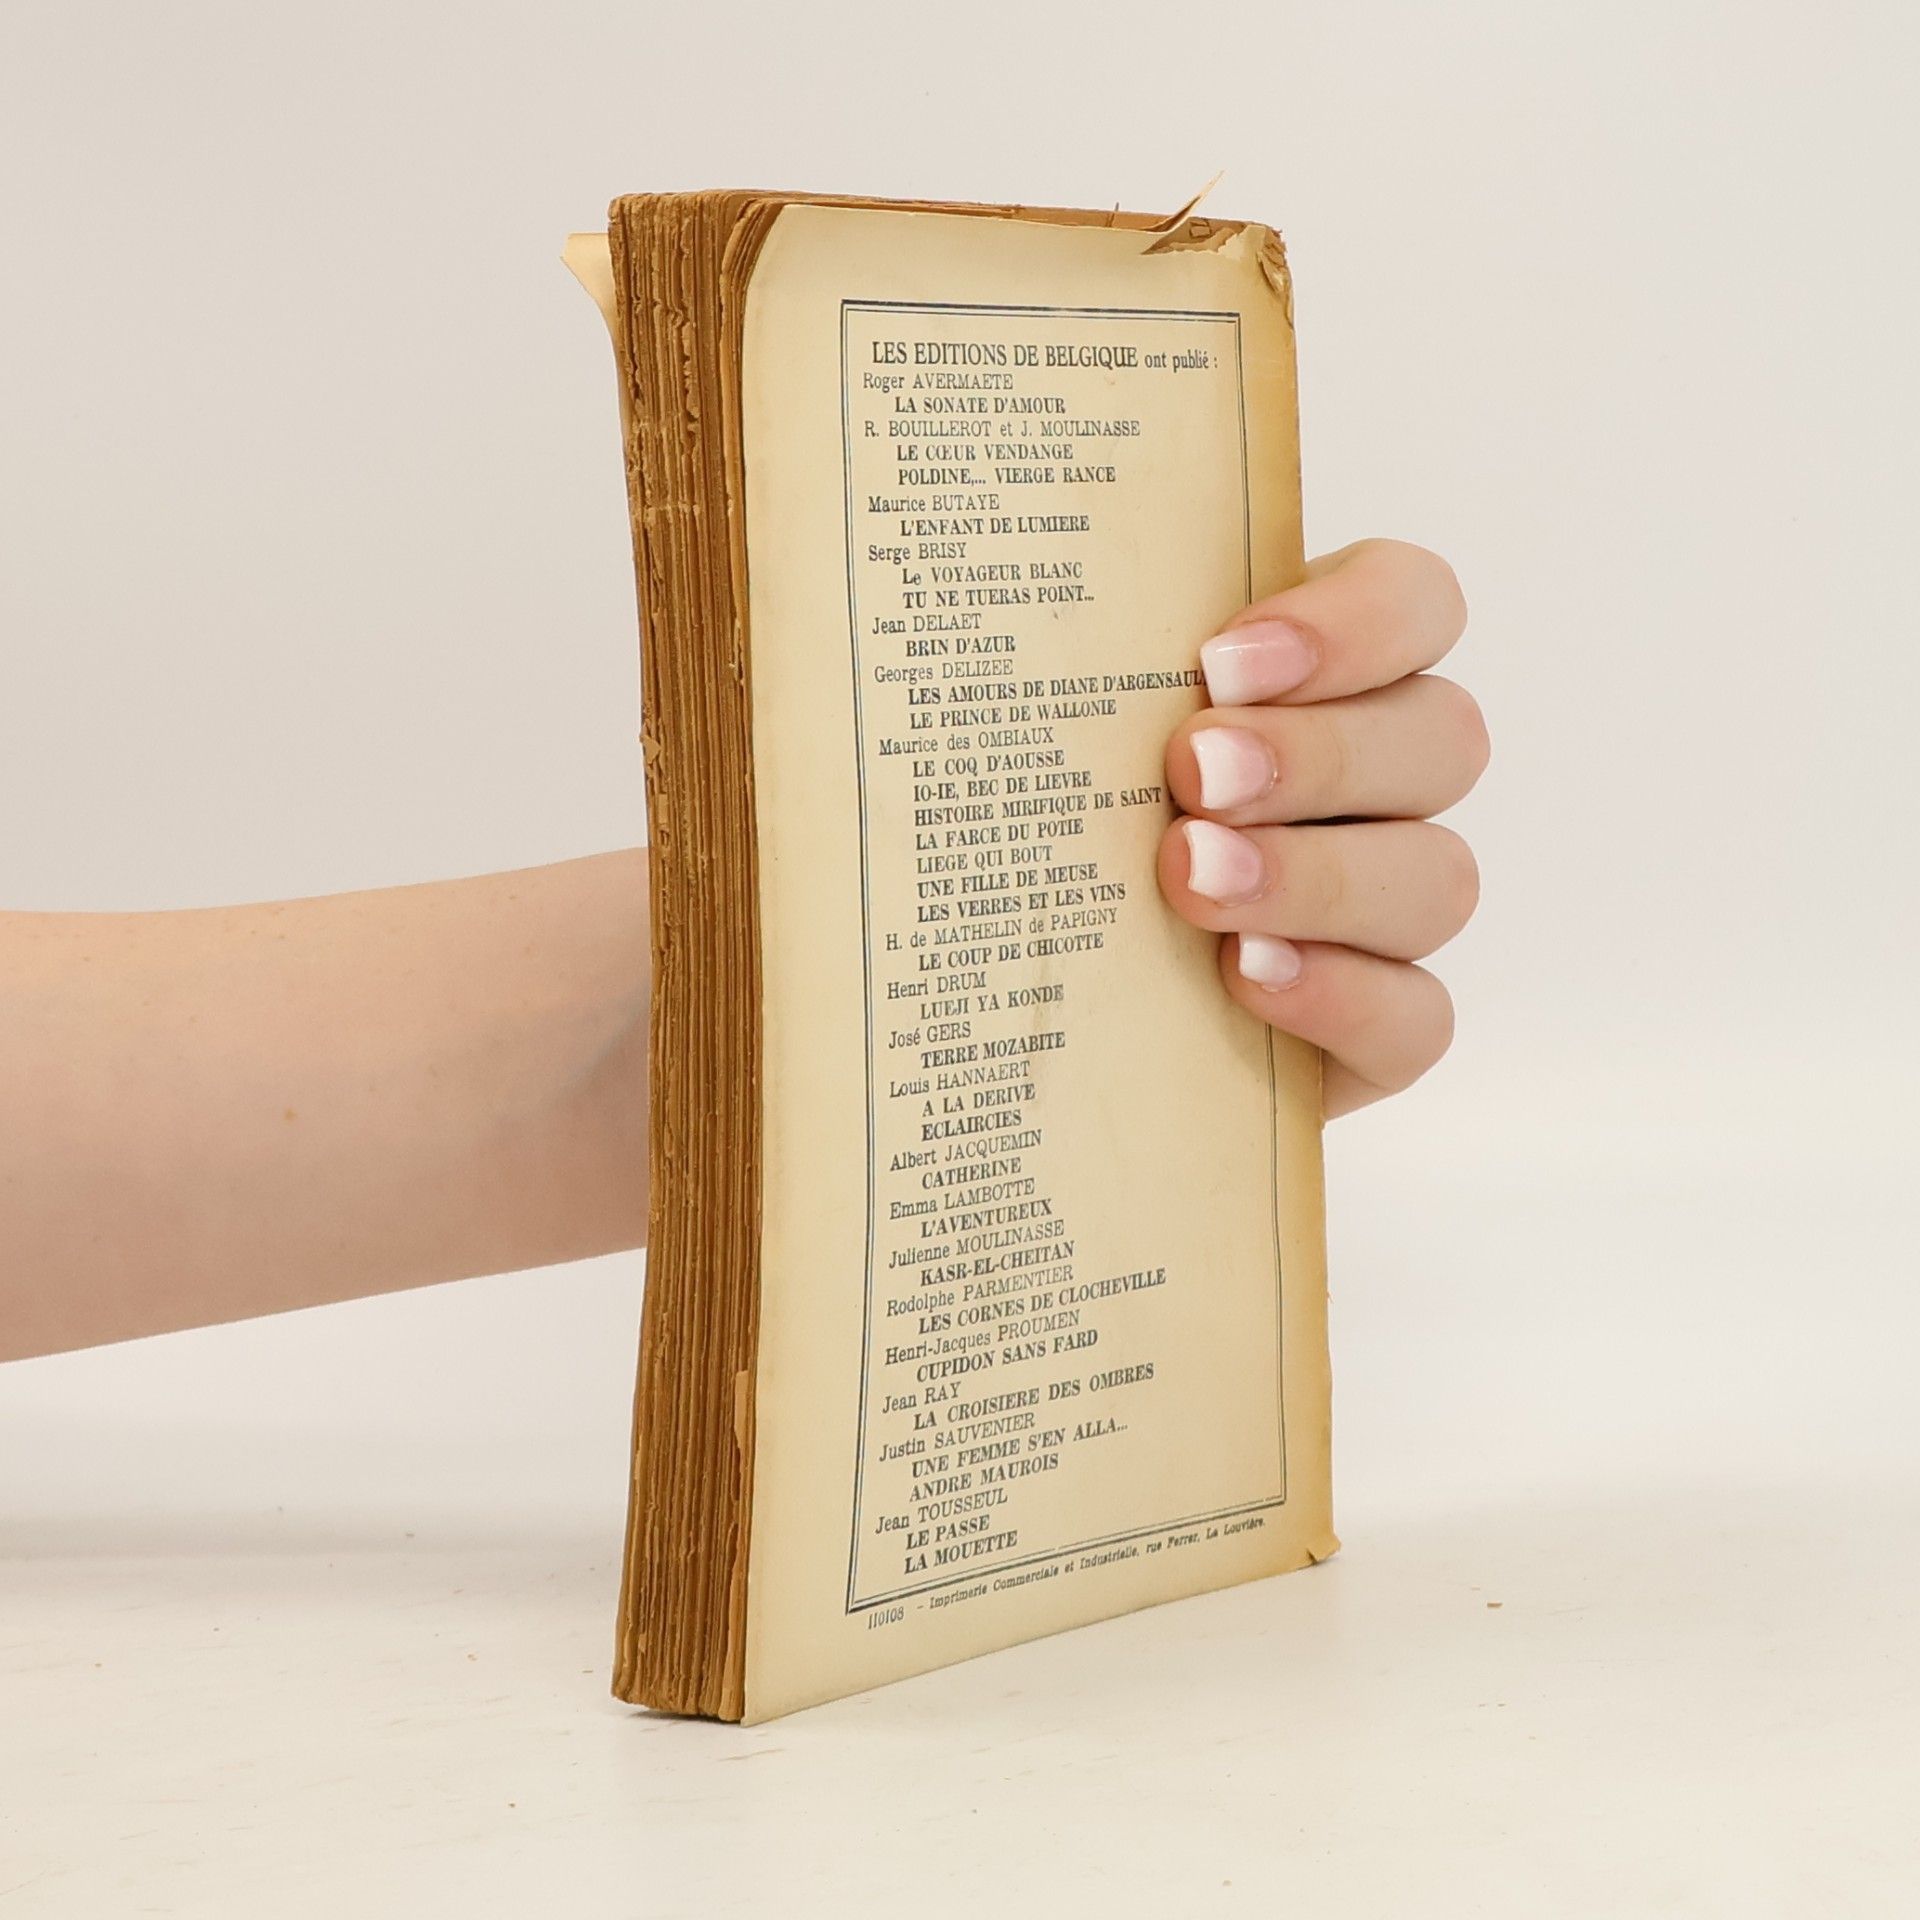 LES EDITIONS DE BELGIQUE ont publié :
Roger AVERMAETE
LA SONATE D'AMOUR
R. BOUILLEROT et J. MOULINASSE
LE CŒUR VENDANGE
POLDINE,... VIERGE RANCE
Maurice BUTAYE
L'ENFANT DE LUMIERE
Serge BRISY
Le VOYAGEUR BLANC
TU NE TUERAS POINT...
Jean DELAET
BRIN D'AZUR
Georges DELIZEE
LES AMOURS DE DIANE
LE PRINCE DE WALLONIE
Maurice des OMBIAUX
LE COQ D'AOUSSE
IO-IE, BEC DE LIEVRE
HISTOIRE MIRIFIQUE DE SAINT
LA FARCE DU POTIE
LIEGE QUI BOUT
UNE FILLE DE MEUSE
LES VERRES ET LES VINS
H. de MATHELIN de PAPIGNY
LE COUP DE CHICOTTE
Henri DRUM
LUEJI YA KONDE
José GERS
TERRE MOZABITE
Louis HANNAERT
A LA DERIVE
ECLAIRCIES
Albert JACQUEMIN
CATHERINE
Emma LAMBOTTE
L'AVENTUREUX
Julienne MOULINASSE
KASR-EL-CHEITAN
Rodolphe PARMENTIER
LES CORNES DE CLOCHEVILLE
Henri-Jacques PROUMEN
CUPIDON SANS FARD
Jean RAY
LA CROISIERE DES OMBRES
Justin SAUVENIER
UNE FEMME S'EN ALLA...
ANDRE MAUROIS
Jean TOUSSEUL
LE PASSE
LA MOUETTE
110108 - Imprimerie Commerciale et Industrielle, rue Ferrer, La Louvière.